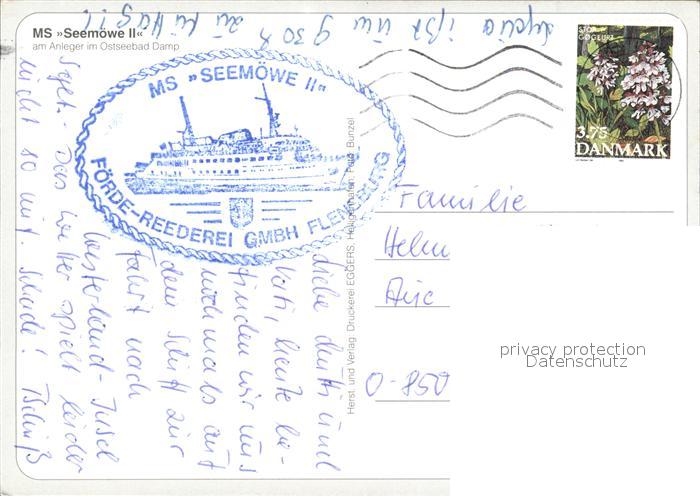 MS »Seemöwe II«
am Anleger im Ostseebad Damp
ist um 9 30 h zu
MS »SEEMÖWE II«
FÖRDE-REEDEREI GMBH FLENSBURG
Liebe Mutti und
Vati, heute be-
finden wir uns
nochmals auf
dem Schiff zur
Fahrt nach
Westerland-Insel
Das Wetter spielt leider
nicht so mit. Schade! Tschüß
Herst. und Verlag: Druckerei EGGERS, Heiligenhafen Foto: Bunzel
STOR GØGEURT
3.75
DANMARK
Familie
Helm
O-850
privacy protection
Datenschutz